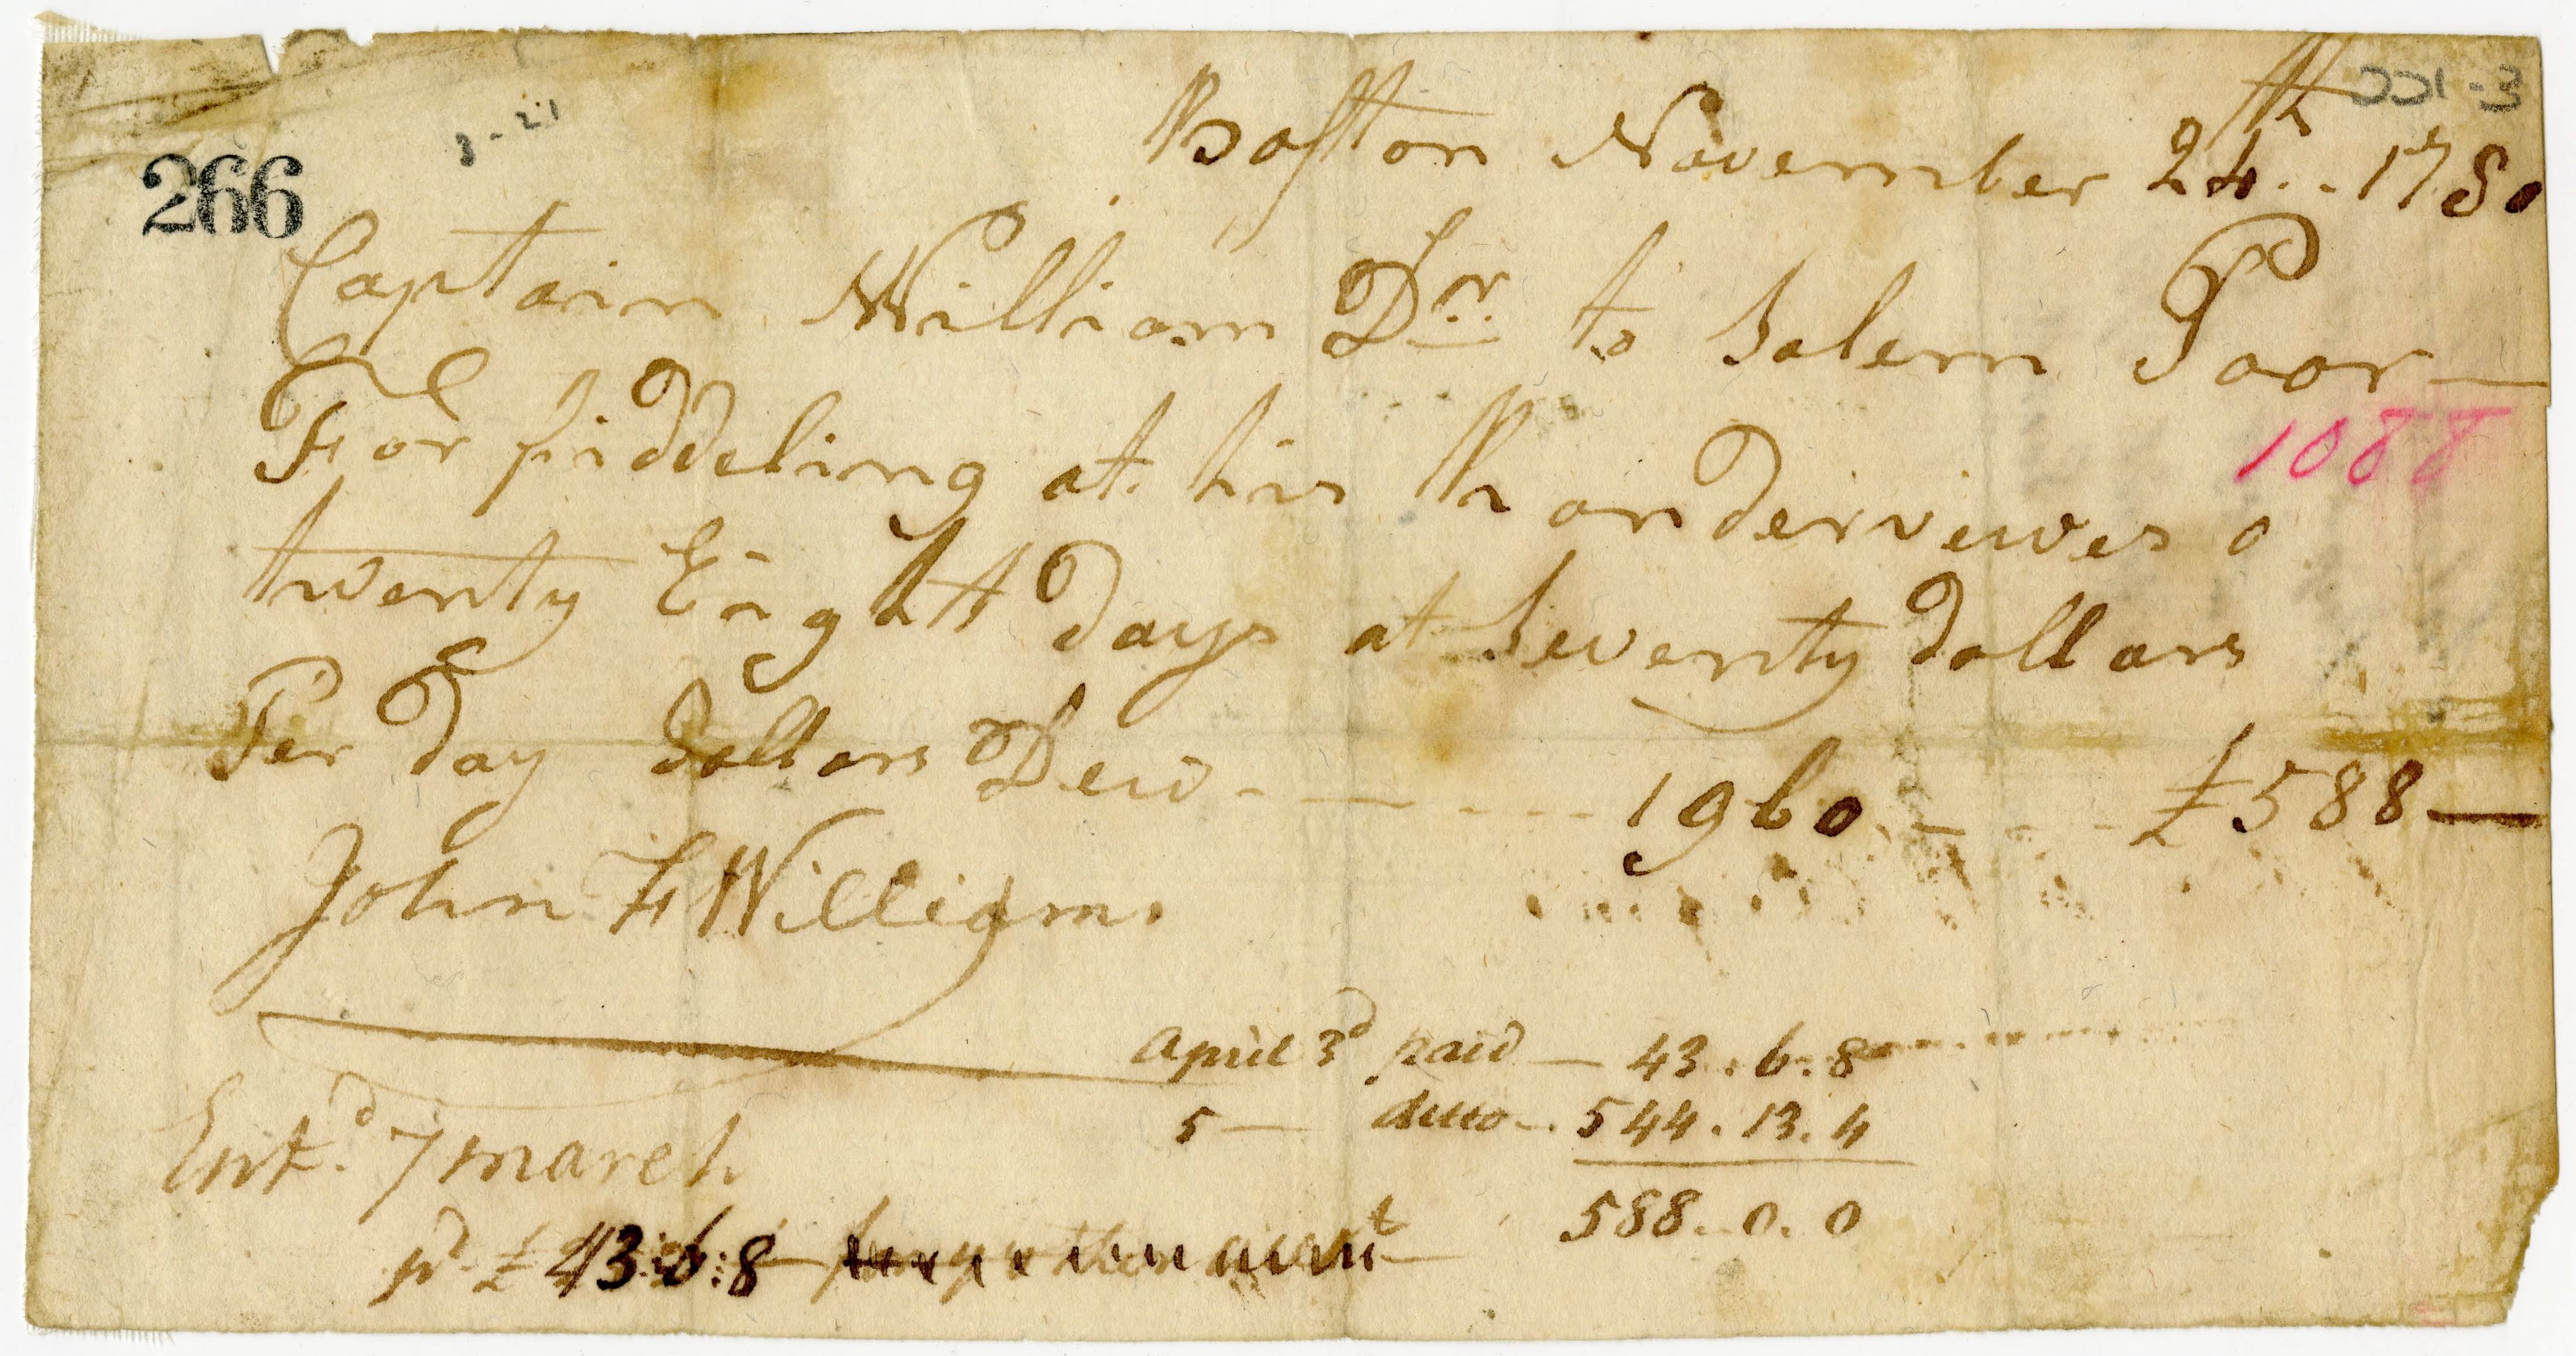 DD1-3
3-21
266
Boston November 24th.. 1780
Captain William Dr.. to Salem Poor—
For fiddeling at his Randervewes
1088
twenty Eight days at Seventy dollars
Per day dollars Dew - — - - - - 1960 - — - - - £588 —
John F Williams
April 3d paid — 43.6.8
5 — ditto - 544.13.4
588.0.0
Entd. 7 march
pd £43:6:8